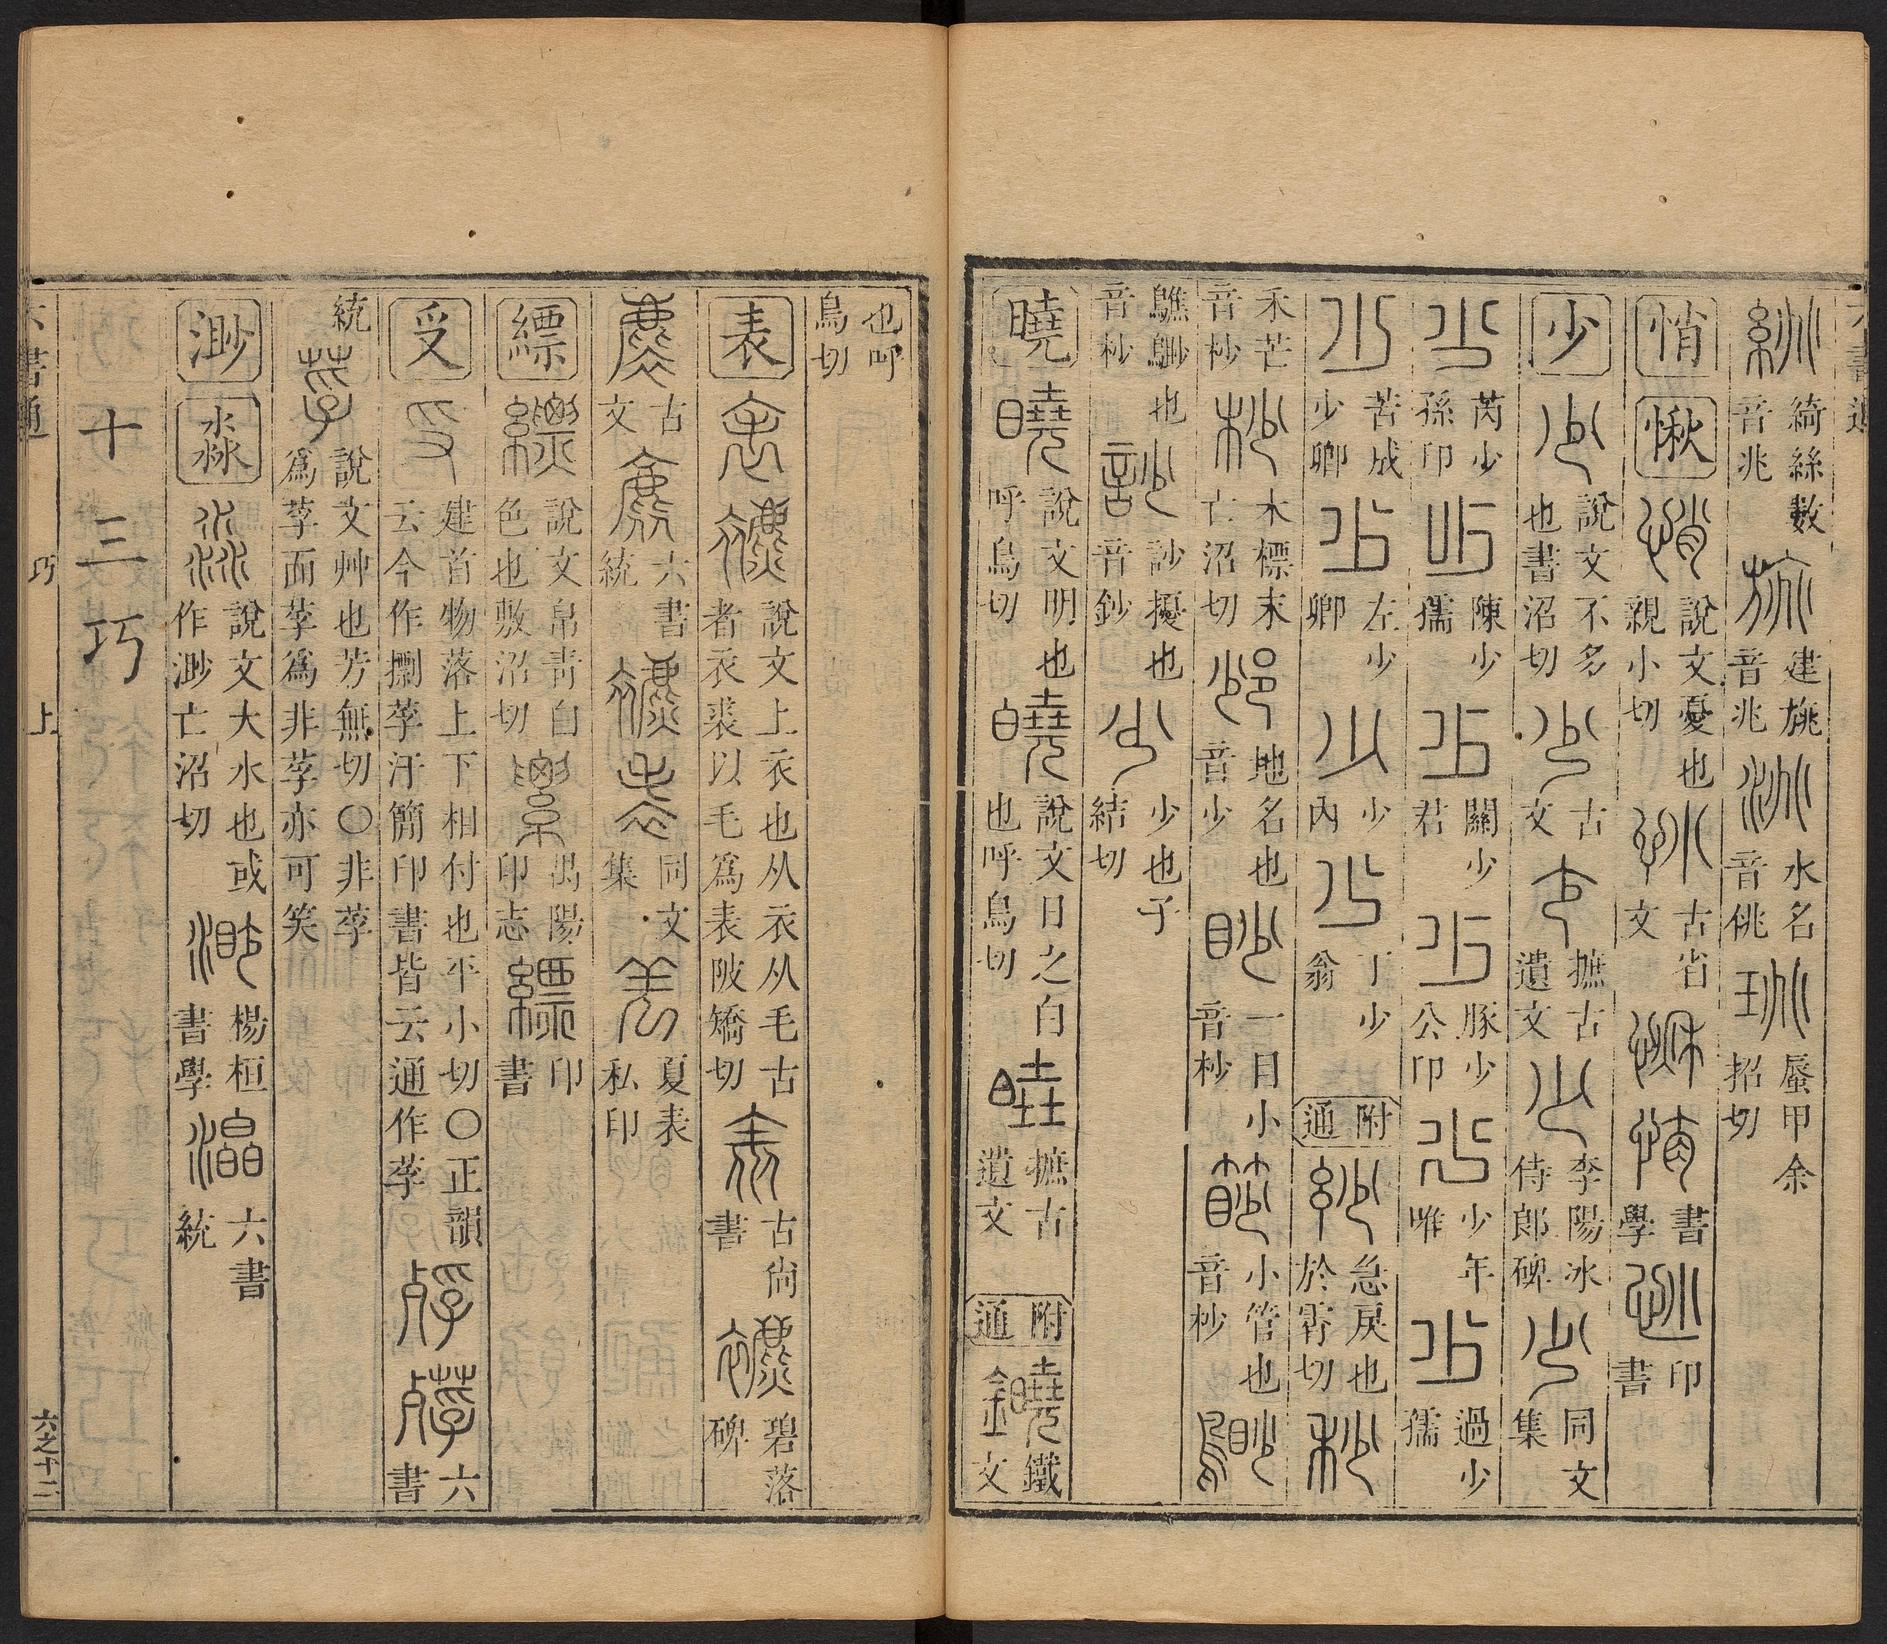 綺絲數音兆 建旐音兆 水名音佻 蜃甲余招切
悄 愀 說文憂也親小切 古文省 書學 印書
少 說文不多也書沼切 古文 摭古遺文 李陽冰侍郎碑 同文集
芮少孫印 陳少孺 關少君 豚少公印 少年唯 過少孺
苦成少卿 左少卿 少內 丁少翁 附通 急戾也於霄切
禾芒音杪 木標末亡沼切 地名也音少 一目小音杪 小管也音杪
鷦䳚也音杪 訬擾也音鈔 少也子結切
曉 說文明也呼鳥切 說文日之白也呼鳥切 摭古遺文 附通 鐵金文
也呼鳥切
表 說文上衣也从衣从毛古者衣裘以毛爲表陂矯切 古尙書 碧落碑
古文 六書統 同文集 夏表私印
縹 說文帛靑白色也敷沼切 陽印志 印書
受 建首物落上下相付也平小切〇正韻云今作摽莩汗簡印書皆云通作莩 六書
統 說文艸也芳無切〇非莩爲莩而莩爲非莩亦可笑
渺 淼 說文大水也或作渺亡沼切 楊桓書學 六書統
十三巧
六書通 巧 上 六之十二